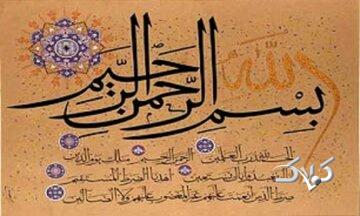 بِسْمِ اللّٰهِ الرَّحْمٰنِ الرَّحِيْمِ
الحمد لله رب العالمين الرحمن الرحيم مالك يوم الدين
اياك نعبد واياك نستعين اهدنا الصراط المستقيم
صراط الذين انعمت عليهم غير المغضوب عليهم ولا الضالين